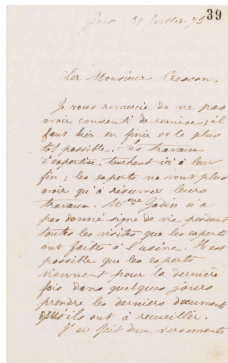 39
Guise 31 Juillet 78
Cher Monsieur Cresson,
Je vous remercie de ne pas
avoir consenti de remise; il
faut bien en finir et le plus
tôt possible. Les travaux
d'expertise touchent ici à leur
fin; les experts ne vont plus
avoir qu'à résumer leurs
travaux. Mme Godin n'a
pas donné signe de vie pendant
toutes les visites que les experts
ont faites à l'usine. Il est
possible que les experts
viennent pour la dernière
fois dans quelques jours
prendre les derniers documents
qu'ils ont à recueillir.
J'ai fait deux versements